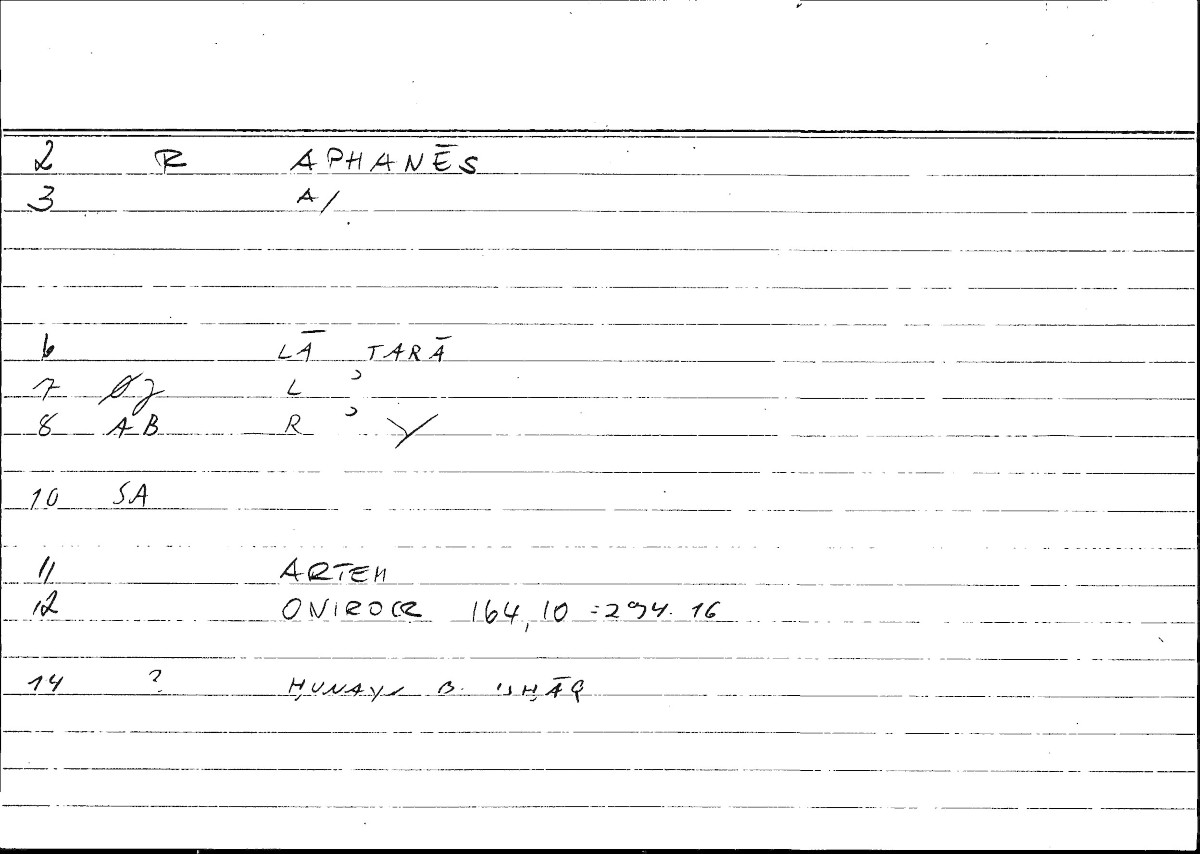 2 R APHANĒS
3 A/
6 LĀ TARĀ
7 L ʾ
8 AB R ʾ Y
10 SA
11 ARTEM
12 ONIROCR 164,10 = 294.16
14 ? ḤUNAYN B. ISḤĀQ